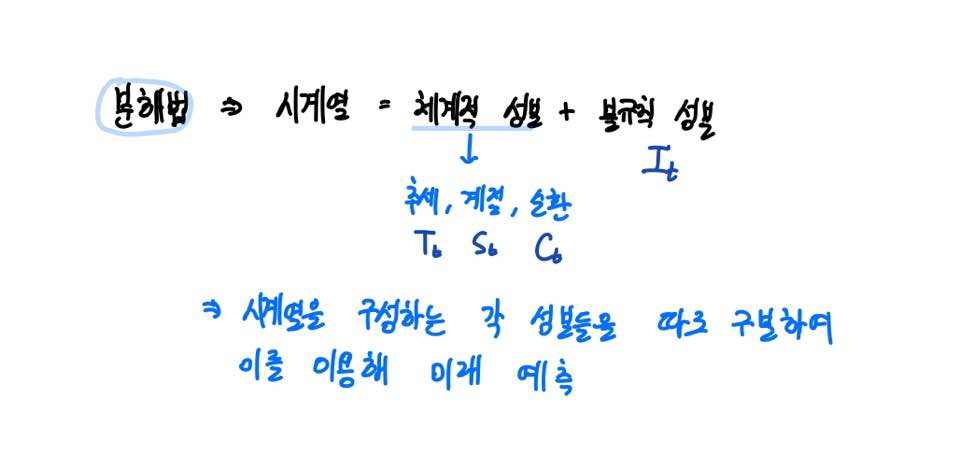 분해법 ⇒ 시계열 = 체계적 성분 + 불규칙 성분
I_t
추세, 계절, 순환
T_t S_t C_t
⇒ 시계열을 구성하는 각 성분들을 따로 구분하여
이를 이용해 미래 예측